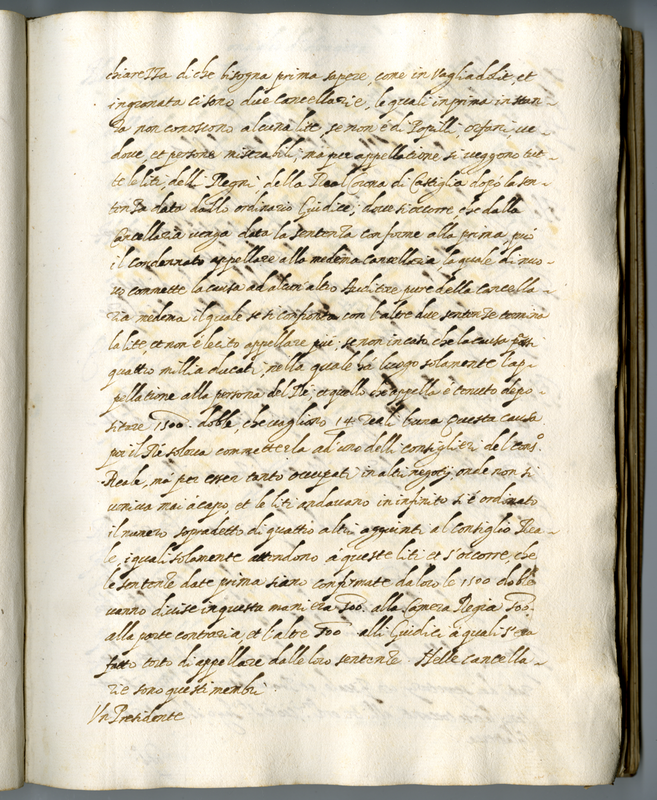 chiarezza di che bisogna prima sapere, come in Vagliadolit, et
in granata ci sono due Cancellarie, le quali in prima instan-
za non conoscono alcuna lite, se non è di Pupilli, orfani, ve-
dove, et persone miserabili, ma per appellatione si veggono tut-
te le liti, delli Regni, della Real Corona di Castiglia dopò la sen-
tenza data dallo ordinario Giudice; dove s'occorre che dalla
Cancellaria venga data la sentenza conforme alla prima, può
il condennato appellare alla medema Cancellaria, la quale di nuo-
vo commette la causa ad alcun'altro Auditore pure della Cancella-
ria medema il quale se si confronta con l'altre due sentenze termina
la lite, et non è lecito appellare più, se non in caso che la causa passi
quattro milla ducati, nella quale hà luogo solamente l'ap-
pellatione alla persona del Rè, et quello che appella è tenuto depo-
sitare 1500. doble, che vagliono 14 reali l'una Questa causa
poi il Rè soleva commetterla ad uno delli consiglieri del cons.º
Reale, mà per esser tanto occupati in altri negotij, onde non si
veniva mai à capo, et le liti andavano in infinito si è ordinato
il numero sopradetto di quattro altri aggiunti al Consiglio Rea-
le, i quali solamente attendono à queste liti et s'occorre che
le sentenze date prima siano confirmate da loro le 1500 doble
vanno divise in questa maniera 500. alla Camera Regia 500.
alla parte contraria, et l'altre 500 alli Giudici à quali s'era
fatto torto di appellare dalle loro sentenze. Nelle Cancella-
rie sono questi membri
Vn Presidente